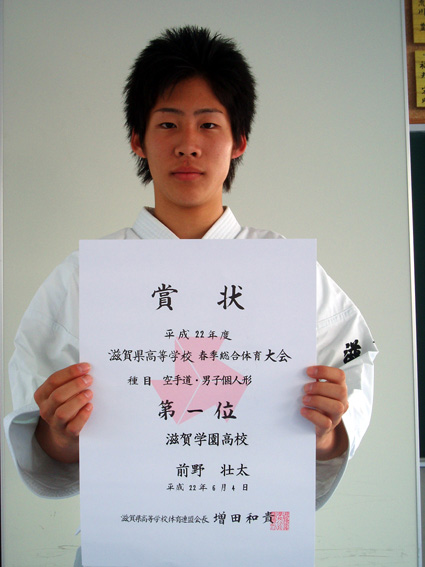 賞状
平成22年度
滋賀県高等学校 春季総合体育大会
種目 空手道・男子個人形
第一位
滋賀学園高校
前野 壮太
平成22年6月4日
滋賀県高等学校体育連盟会長 増田和貴
滋